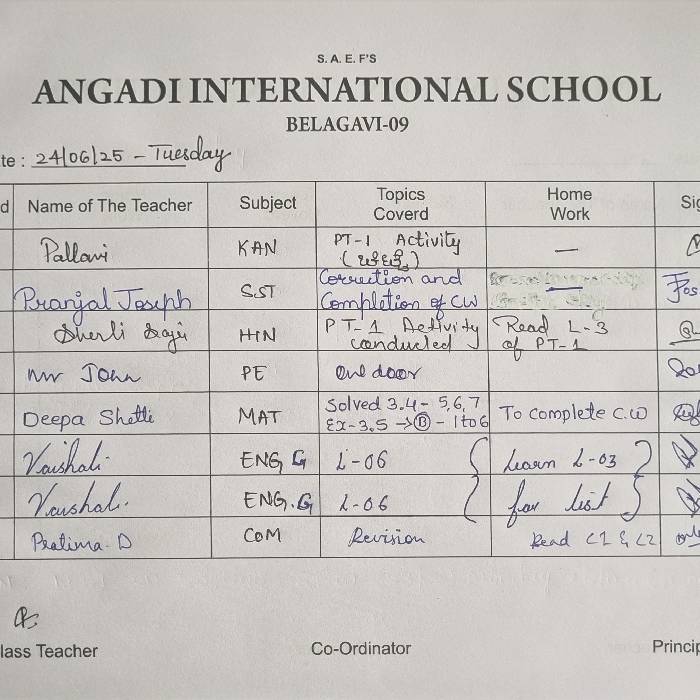 S. A. E. F'S
ANGADI INTERNATIONAL SCHOOL
BELAGAVI-09
te : 24/06/25 - Tuesday
d Name of The Teacher Subject Topics Coverd Home Work Sig
Pallavi KAN PT-1 Activity —
Pranjal Joseph S.ST Correction and Completion of CW —
PT-1 Activity conducted Read L-3 of PT-1
HIN
Mr John PE
Deepa Shetti MAT Solved 3.4 - 5,6,7 To complete C.W
Ex-3.5 → B - 1 to 6
Vaishali ENG G L-06 Learn L-03
Vaishali. ENG. G L-06 for list
Pratima. D COM Revision Read C1 & C2
lass Teacher Co-Ordinator Princip